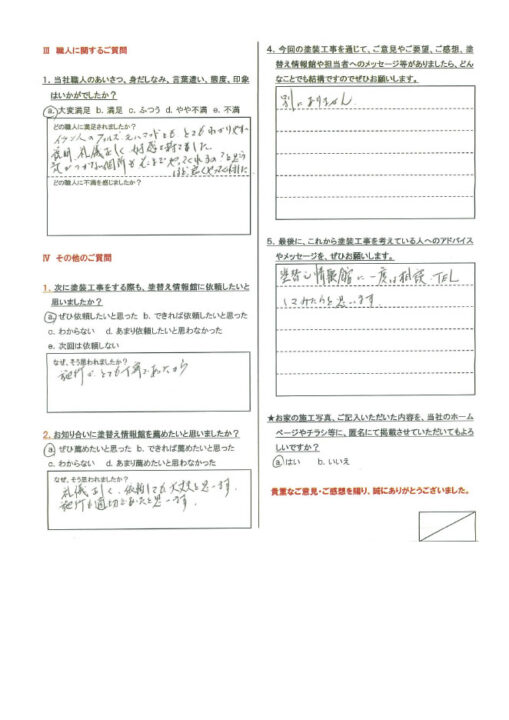 Ⅲ 職人に関するご質問
1. 当社職人のあいさつ、身だしなみ、言葉遣い、態度、印象
はいかがでしたか？
a. 大変満足 b. 満足 c. ふつう d. やや不満 e. 不満
どの職人に満足されましたか？
イラン人の とても わかりやすい
説明、礼儀正しく 好感を持てました。
気がつかない個所も
どの職人に不満を感じましたか？
Ⅳ その他のご質問
1. 次に塗装工事をする際も、塗替え情報館に依頼したいと
思いましたか？
a. ぜひ依頼したいと思った b. できれば依頼したいと思った
c. わからない d. あまり依頼したいと思わなかった
e. 次回は依頼しない
なぜ、そう思われましたか？
施行が、とても丁寧であったから
2. お知り合いに塗替え情報館を薦めたいと思いましたか？
a. ぜひ薦めたいと思った b. できれば薦めたいと思った
c. わからない d. あまり薦めたいと思わなかった
なぜ、そう思われましたか？
礼儀正しく、依頼しても大丈夫と思います。
施行も適切であったと思います。
4. 今回の塗装工事を通じて、ご意見やご要望、ご感想、塗
替え情報館や担当者へのメッセージ等がありましたら、どん
なことでも結構ですのでぜひお願いします。
別にありません
5. 最後に、これから塗装工事を考えている人へのアドバイス
やメッセージを、ぜひお願いします。
塗替え情報館に一度は相談、TEL
してみたらと思います
★お家の施工写真、ご記入いただいた内容を、当社のホーム
ページやチラシ等に、匿名にて掲載させていただいてもよろ
しいですか？
a. はい b. いいえ
貴重なご意見・ご感想を賜り、誠にありがとうございました。